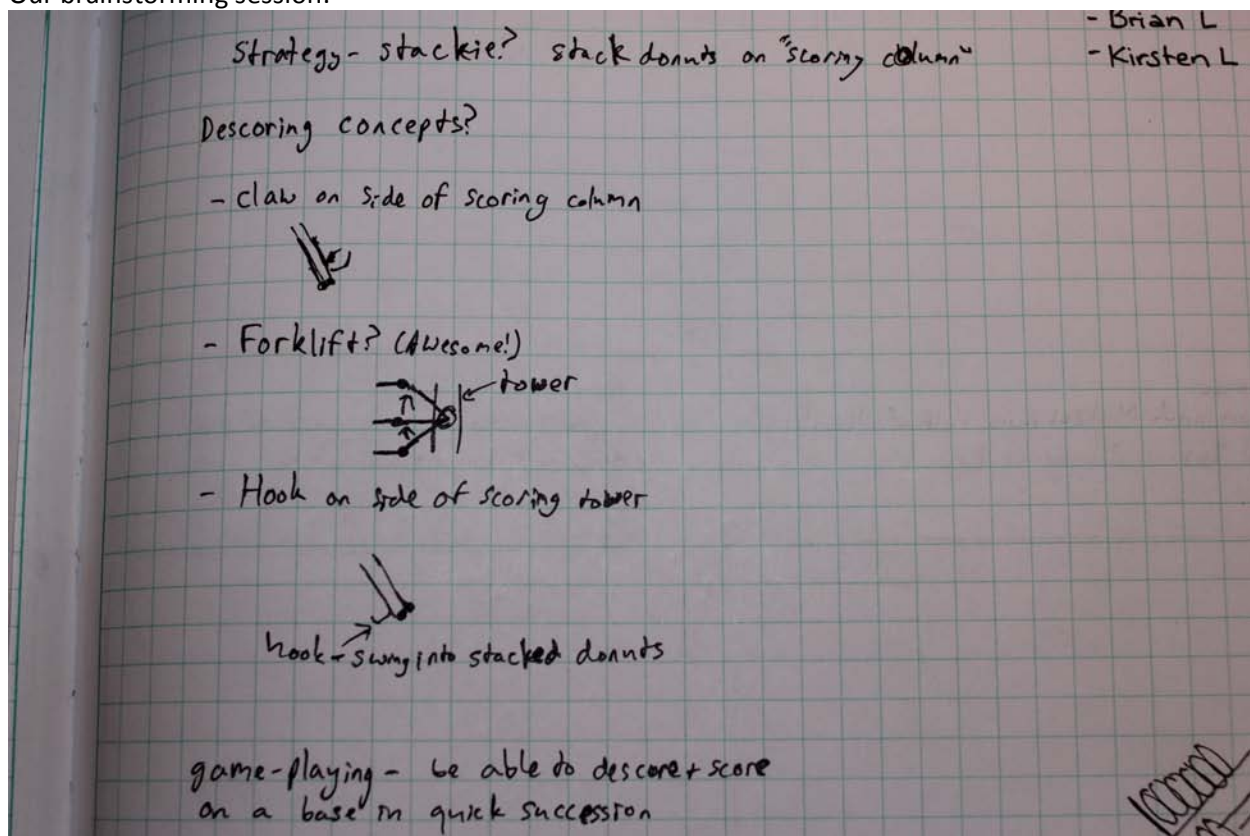 Our brainstorming session:
- Brian L
Strategy - stackie? stack donuts on "scoring column"
- Kirsten L
Descoring concepts?
- claw on side of scoring column
- Forklift? (Awesome!)
tower
- Hook on side of scoring tower
hook - swing into stacked donuts
game-playing - be able to descore + score
on a base in quick succession